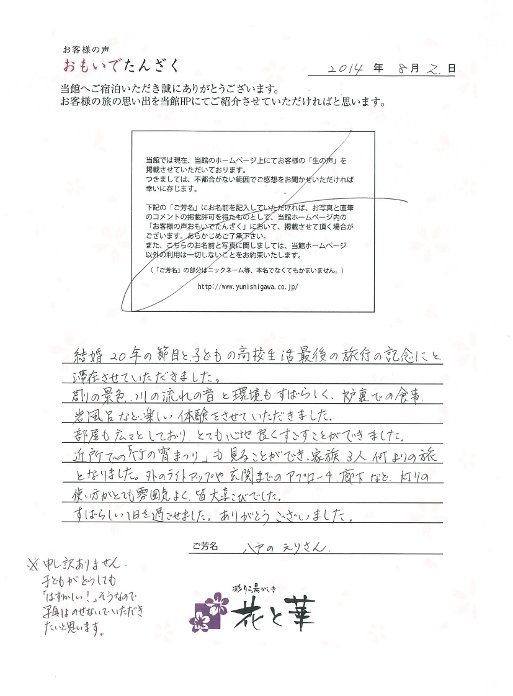 お客様の声
おもいでたんざく
2014 年 8月 2 日
当館へご宿泊いただき誠にありがとうございます。
お客様の旅の思い出を当館HPにてご紹介させていただければと思います。
当館では現在、当館のホームページ上にてお客様の「生の声」を
掲載させていただいております。
つきましては、不都合がない範囲でご感想をお聞かせいただければ
幸いに存じます。
下記の「ご芳名」にお名前を記入していただければ、お写真と直筆
のコメントの掲載許可を得たものとして、当館ホームページ内の
「お客様の声おもいでたんざく」において、掲載させて頂く場合が
ございます。あらかじめご了承下さい。
また、こちらのお名前と写真に関しましては、当館ホームページ
以外の利用は一切しないことをお約束いたします。
(「ご芳名」の部分はニックネーム等、本名でなくてもかまいません。)
http://www.yunishigawa.co.jp/
結婚20年の節目と、子どもの高校生活最後の旅行の記念にと
滞在させていただきました。
周りの景色、川の流れの音と環境もすばらしく、炉裏での食事、
岩風呂など、楽しい体験をさせていただきました。
部屋も広々としており とても心地良くすごすことができました。
近所での「竹の宵まつり」も見ることができ、家族3人何よりの旅
となりました。外のライトアップや玄関までのアプローチ、廊下など、灯りの
使い方がとても雰囲気よく、皆大喜びでした。
すばらしい1日を過せました。ありがとうございました。
ご芳名 八ヤのえりさん
※申し訳ありません。
子どもがどうしても
「はずかしい!」そうなので
写真はのせないでいただき
たいと思います。
彩り湯かしき
花と華